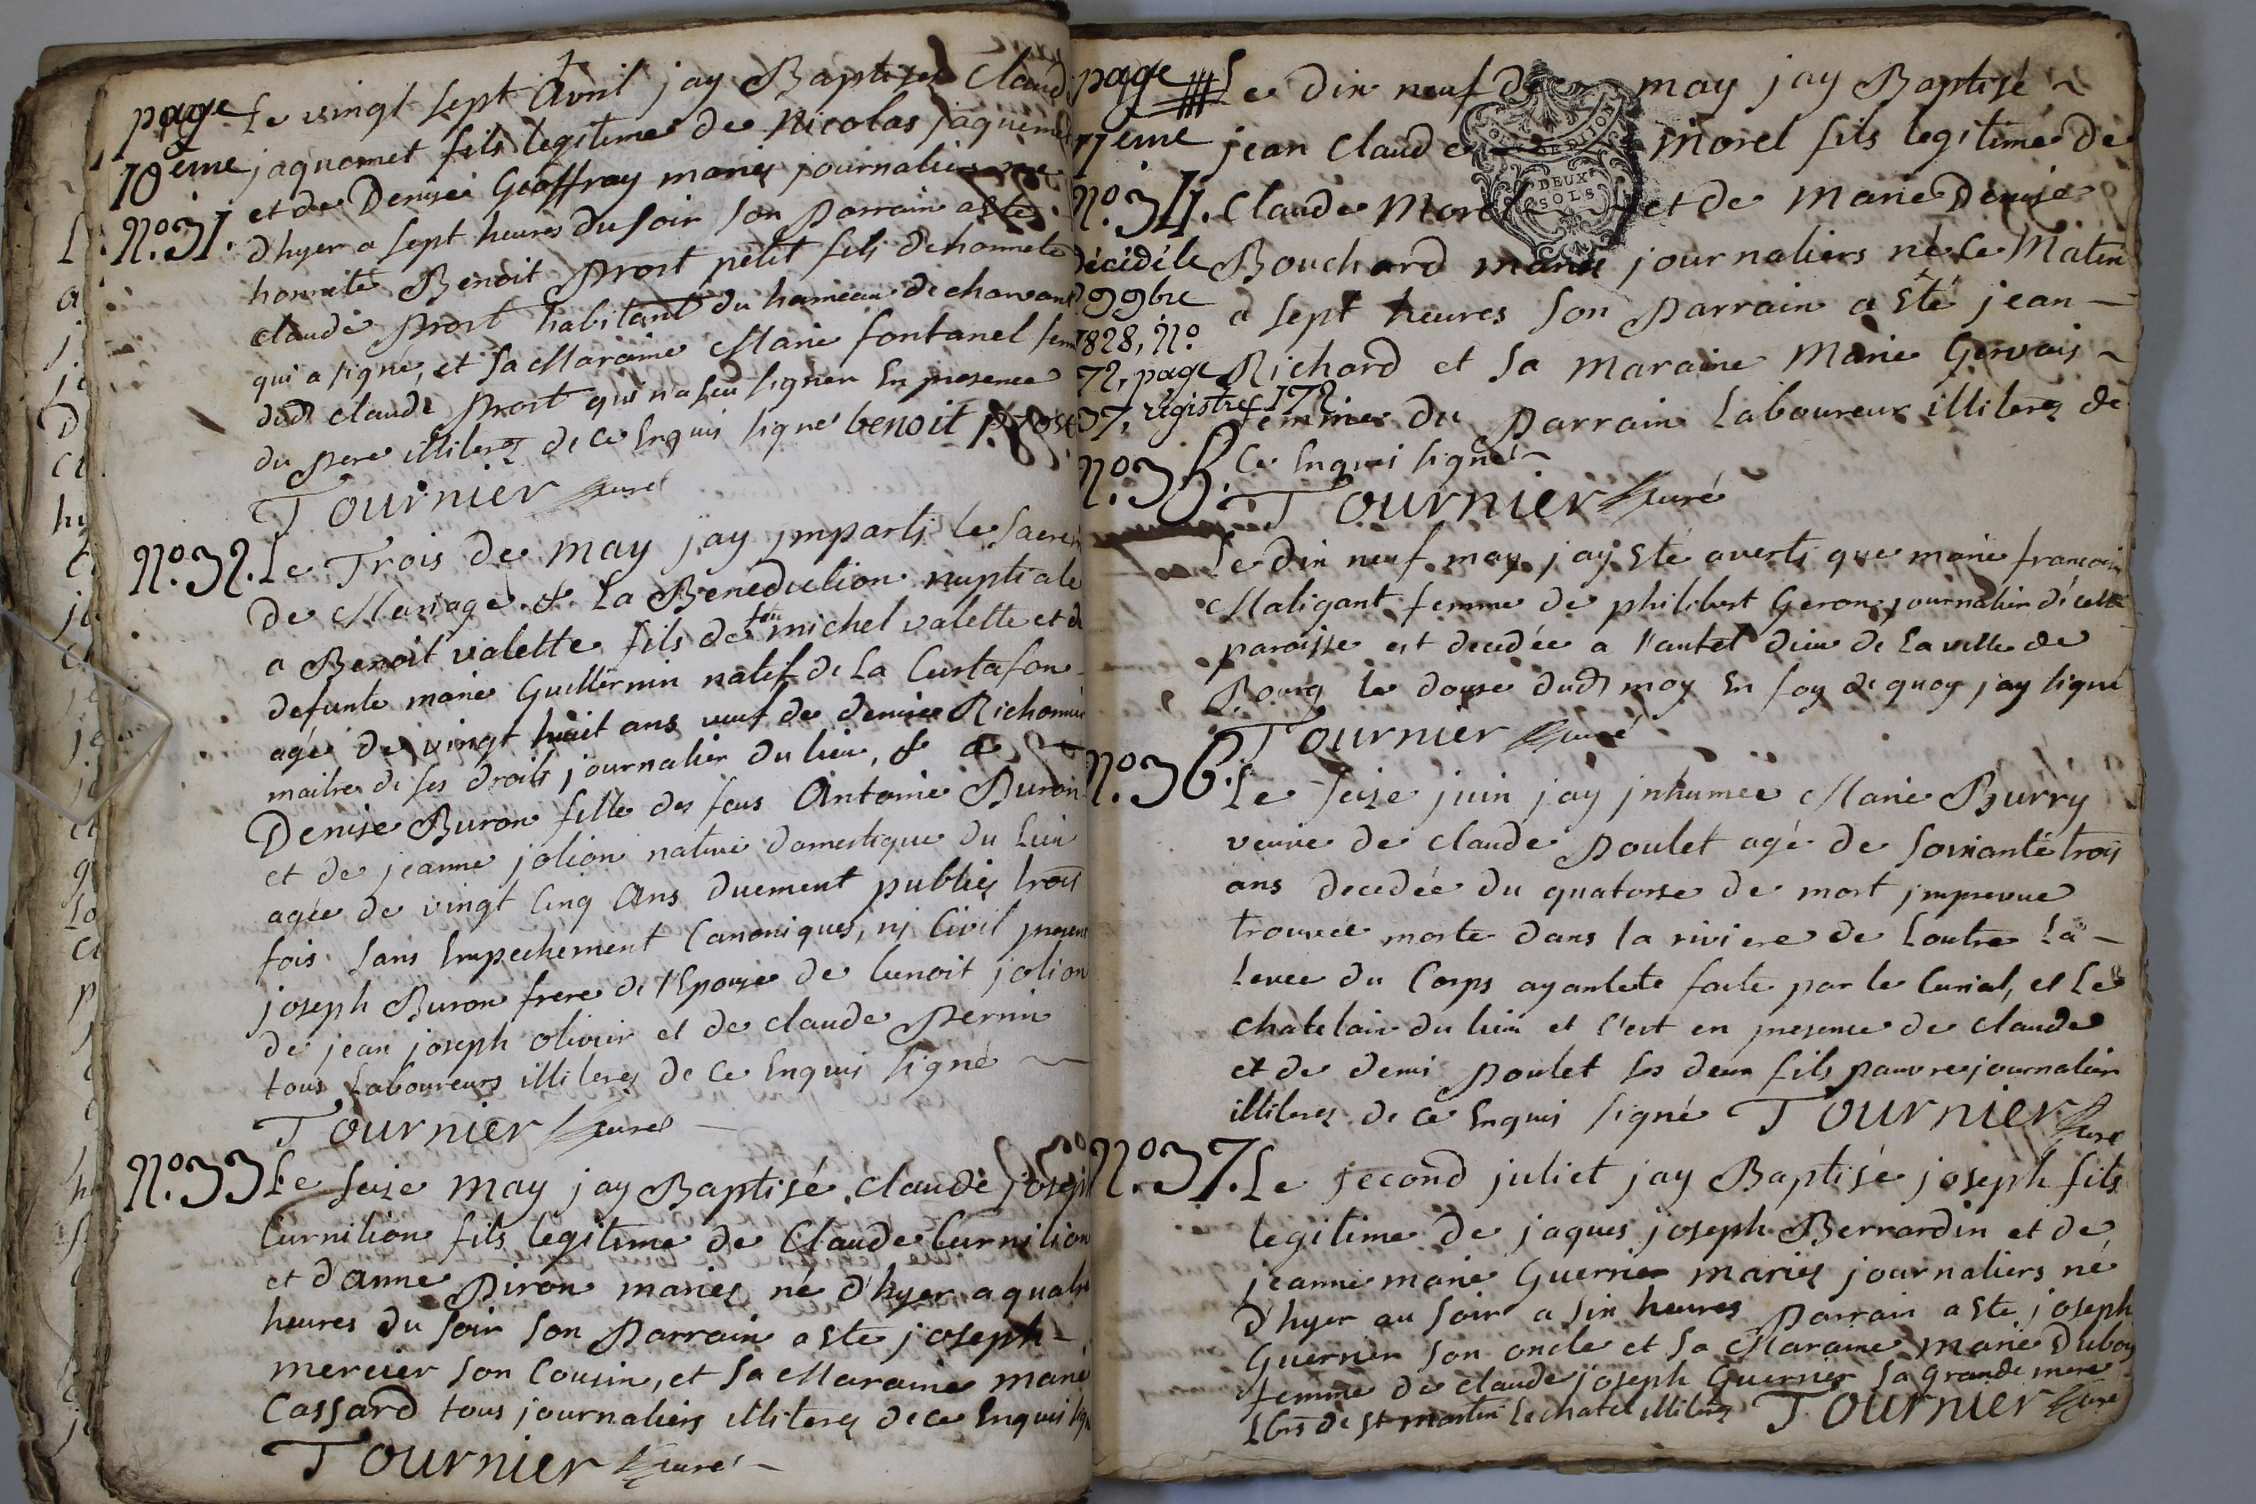 page
10eme
Le vingt sept avril jay Baptisé Claud
jaquemet fils legitime de Nicolas jaqueme
et de Denise Geoffray mariés journaliers
N.º 31.
d'hyer a sept heures du soir son parrain a ste
honnete Benoit prost petit fils dehonnete
claude prost habitant du hameau de
qui a signé, et sa Maraine Marie fontanel fem
dud claude prost qui na seu signer En presence
du pere illiteres de ce Enquis signé benoit prost
Tournier curé
N.º 32.
Le Trois de may jay jmparti le Sacrem
de Mariage & La Benediction nuptiale
a Benoit valette fils de feu michel valette et de
defunte marie Guillermin natif de La Curtafon
agé de vingt huit ans veuf de denise
maitre de ses droits journalier du lieu, & a
Denise Buron fille des feus Antoine Buron
et de jeanne jolion native domestique du Lieu
agée de vingt Cinq ans duement publiés trois
fois sans Empechement Canoniques, nj Civil present
joseph Buron frere de l'Epouse de benoit jolion
de jean joseph olivier et de claude Perrin
tous Laboureurs illiteres de Ce Enquis signé
Tournier curé
N.º 33.
Le seize may jay Baptisé claude joseph
Curnilion fils legitime de Claude Curnilion
et d'anne Piron mariés né d'hyer a quatre
heures du soir son Parrain a Ste joseph
mercier son Cousin, et sa Maraine marie
Cassard tous journaliers illiteres de ce Enquis
Tournier curé
page
Le dix neuf de may jay Baptisé
jean Claude Morel fils legitime de
N.º 34.
Claude Morel et de Marie Denise
DEUX
SOLS
décédé le
Bouchard mariés journaliers né Le Matin
9bre
a sept heures son Parrain a Ste jean
1828, N.º
72, page
Richard et sa Maraine Marie Gervais
37, registre 172
femme du Parrain Laboureur illiteres de
N.º 35.
Ce Enquis signé
Tournier curé
Le dix neuf may jay Ste averti que marie francoise
Maligant femme de philibert Geron journalier de cette
paroisse est decedée a l'autel dieu de La ville de
Bourg le douse dud may En foy de quoy jay signé
Tournier curé
N.º 36.
Le seize juin jay jnhumée Marie Burry
veuve de claude Poulet agé de soixante trois
ans decedée du quatorse de mort jmprevue
trouvée morte dans la riviere de Loutre La
Levee du Corps ayantete faite par le Curial, et Le
chatelain du lieu et c'est en presence de claude
et de deni Poulet ses deux fils pauvre journalier
illiteres de ce Enquis signé Tournier curé
N.º 37.
Le second juliet jay Baptisé joseph fils
legitime de jaques joseph Berrardin et de
jeanne marie Guerrier mariés journaliers né
d'hyer au soir a six heures Parrain a Ste joseph
Guerrier son oncle et sa Maraine marie Duboy
femme de claude joseph Guerrier sa grande mere
de St martin Le chatel illiteres Tournier curé